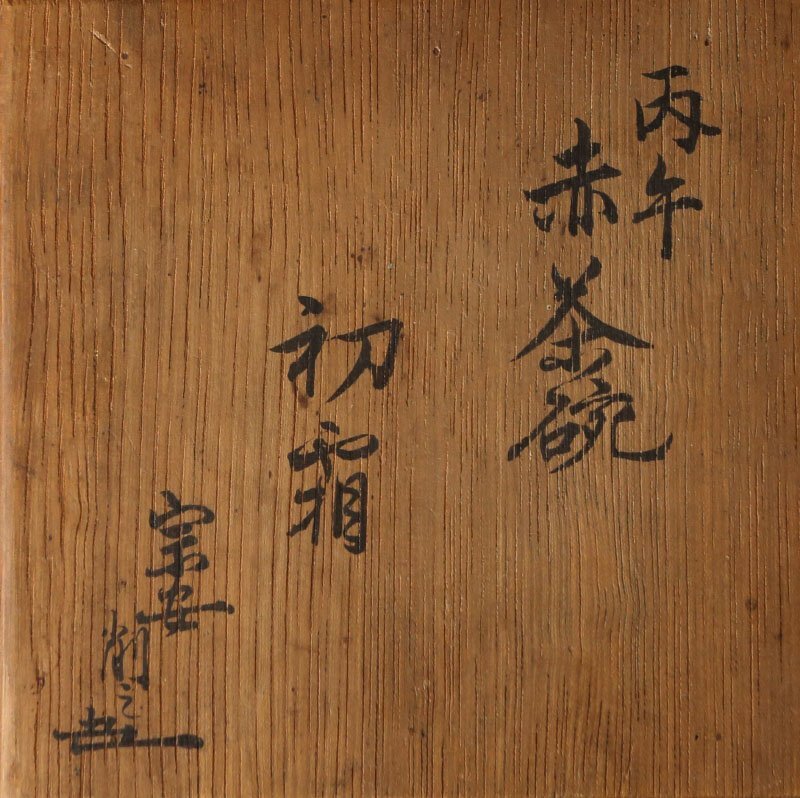 丙午
赤茶碗
初霜
宗安
削之